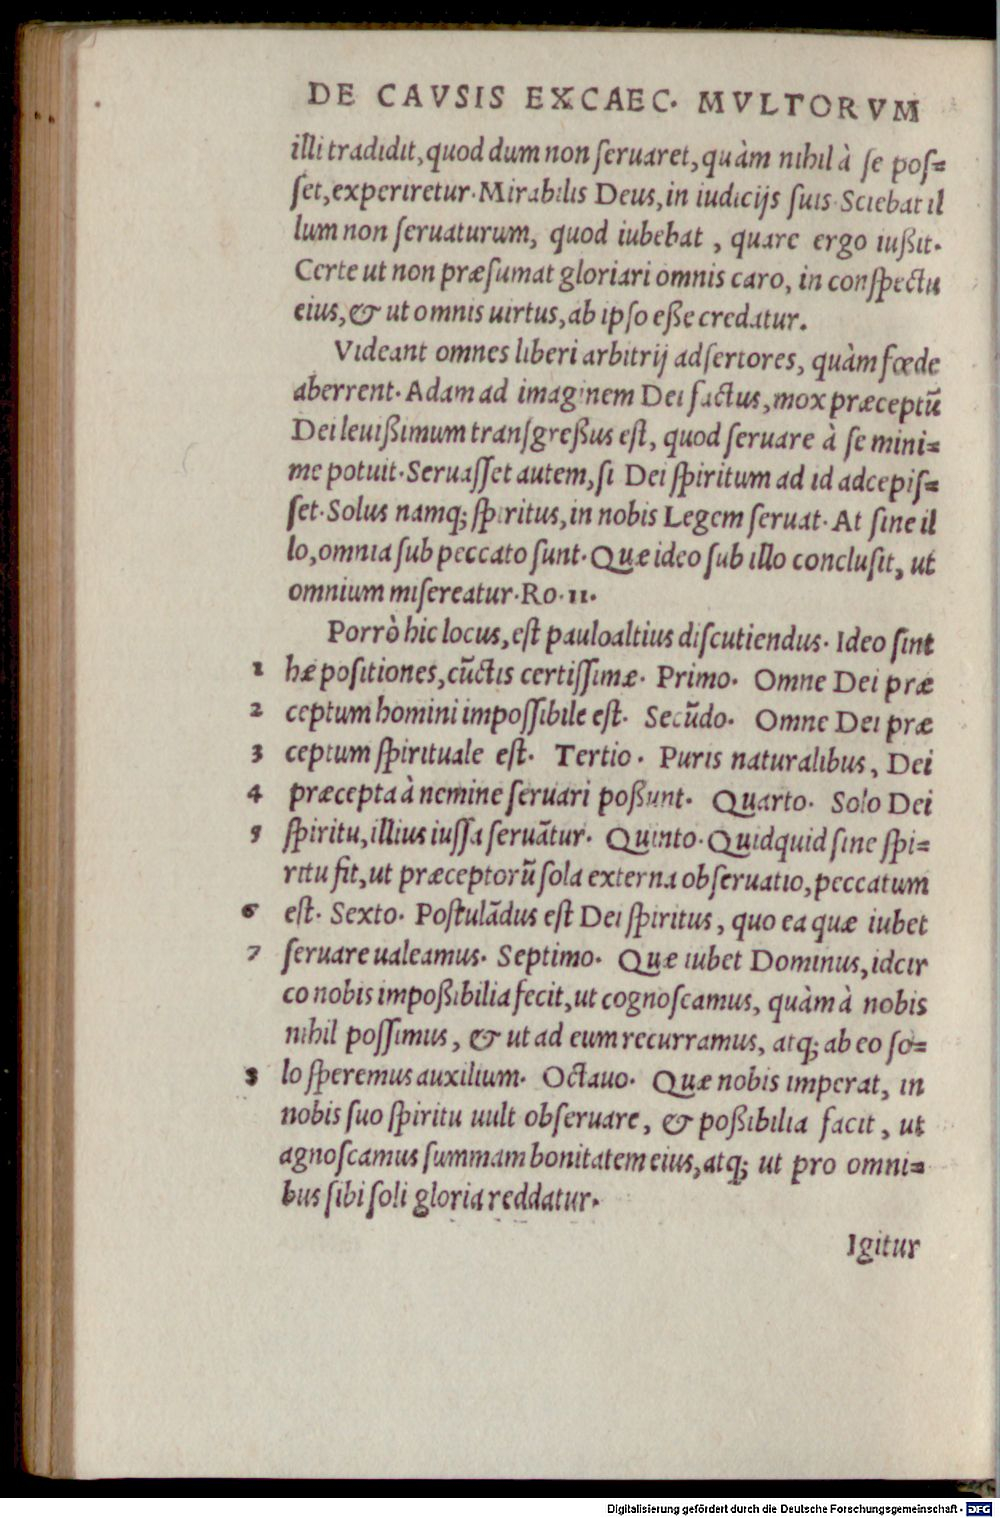 DE CAVSIS EXCAEC. MVLTORVM
illi tradidit, quod dum non ſeruaret, quàm nihil à ſe poſ=
ſet, experiretur. Mirabilis Deus, in iudicijs ſuis. Sciebat il
lum non ſeruaturum, quod iubebat, quare ergo iußit.
Certe ut non præſumat gloriari omnis caro, in conſpectu
eius, & ut omnis uirtus, ab ipſo eße credatur.
Videant omnes liberi arbitrij adſertores, quàm fœde
aberrent. Adam ad imaginem Dei factus, mox præceptũ
Dei leuißimum tranſgreßus eſt, quod ſeruare à ſe mini=
me potuit. Seruaſſet autem, ſi Dei ſpiritum ad id adcepiſ=
ſet. Solus namq; ſpiritus, in nobis Legem ſeruat. At ſine il
lo, omnia ſub peccato ſunt. Quæ ideo ſub illo concluſit, ut
omnium miſereatur. Ro. 11.
Porrò hic locus, eſt pauloaltius diſcutiendus. Ideo ſint
1 hæ poſitiones, cũctis certiſſimæ. Primo. Omne Dei præ
2 ceptum homini impoſſibile eſt. Secũdo. Omne Dei præ
3 ceptum ſpirituale eſt. Tertio. Puris naturalibus, Dei
4 præcepta à nemine ſeruari poßunt. Quarto. Solo Dei
5 ſpiritu, illius iuſſa ſeruãtur. Quinto. Quidquid ſine ſpi=
ritu fit, ut præceptorũ ſola externa obſeruatio, peccatum
6 eſt. Sexto. Poſtulãdus eſt Dei ſpiritus, quo ea quæ iubet
7 ſeruare ualeamus. Septimo. Quæ iubet Dominus, idcir
co nobis impoßibilia fecit, ut cognoſcamus, quàm à nobis
nihil poſſimus, & ut ad eum recurramus, atq; ab eo ſo=
8 lo ſperemus auxilium. Octauo. Quæ nobis imperat, in
nobis ſuo ſpiritu uult obſeruare, & poßibilia facit, ut
agnoſcamus ſummam bonitatem eius, atq; ut pro omni=
bus ſibi ſoli gloria reddatur.
Igitur
Digitalisierung gefördert durch die Deutsche Forschungsgemeinschaft - DFG